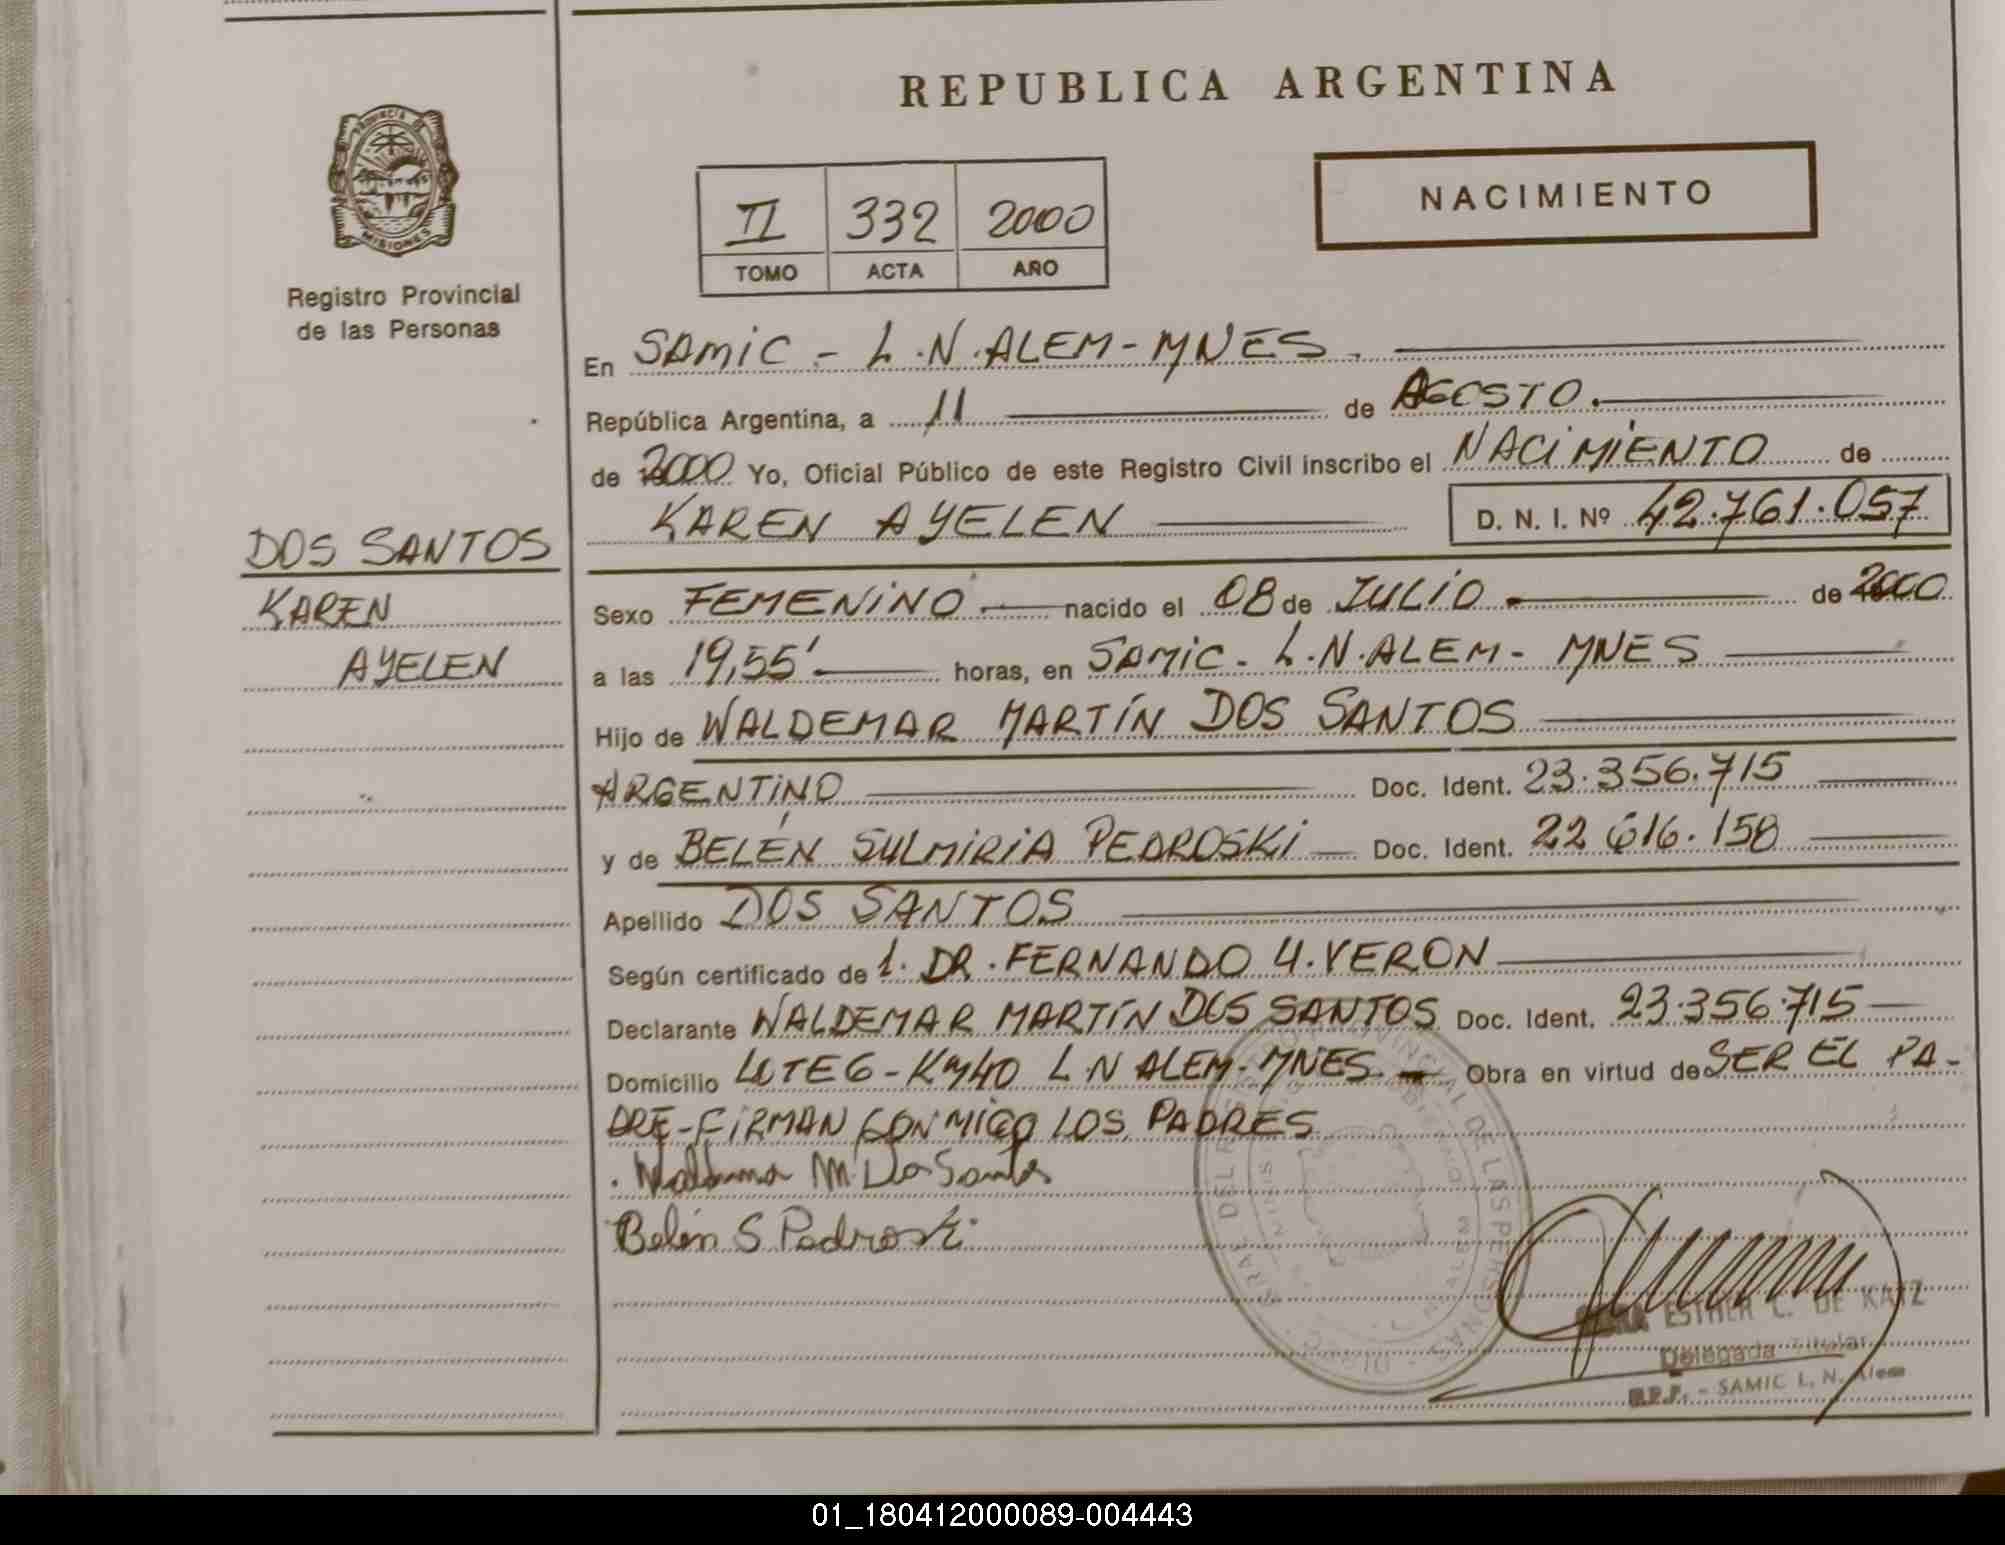 REPUBLICA ARGENTINA
PROVINCIA DE
MISIONES
Registro Provincial
de las Personas
NACIMIENTO
II 332 2000
TOMO ACTA AÑO
En SAMIC - L.N.ALEM-MNES.
República Argentina, a 11 de AGOSTO.
de 2000 Yo, Oficial Público de este Registro Civil inscribo el NACIMIENTO de
KAREN AYELEN D. N. I. Nº 42.761.057
DOS SANTOS
KAREN
AYELEN
Sexo FEMENINO nacido el 08 de JULIO de 2000
a las 19,55' horas, en SAMIC - L.N.ALEM - MNES
Hijo de WALDEMAR MARTÍN DOS SANTOS
ARGENTINO Doc. Ident. 23.356.715
y de BELÉN SULMIRIA PEDROSKI Doc. Ident. 22 616.158
Apellido DOS SANTOS
Según certificado de 1. DR. FERNANDO H. VERON
Declarante WALDEMAR MARTÍN DOS SANTOS Doc. Ident. 23.356.715
Domicilio LOTE 6 - Km 40 L.N ALEM-MNES. Obra en virtud de SER EL PA-
DRE - FIRMAN CONMIGO LOS PADRES
M. Dos Santos
Belén S. Pedroski
ESTHER C. DE KATZ
Delegada Titular
R.P.P. - SAMIC L. N. Alem
01_180412000089-004443